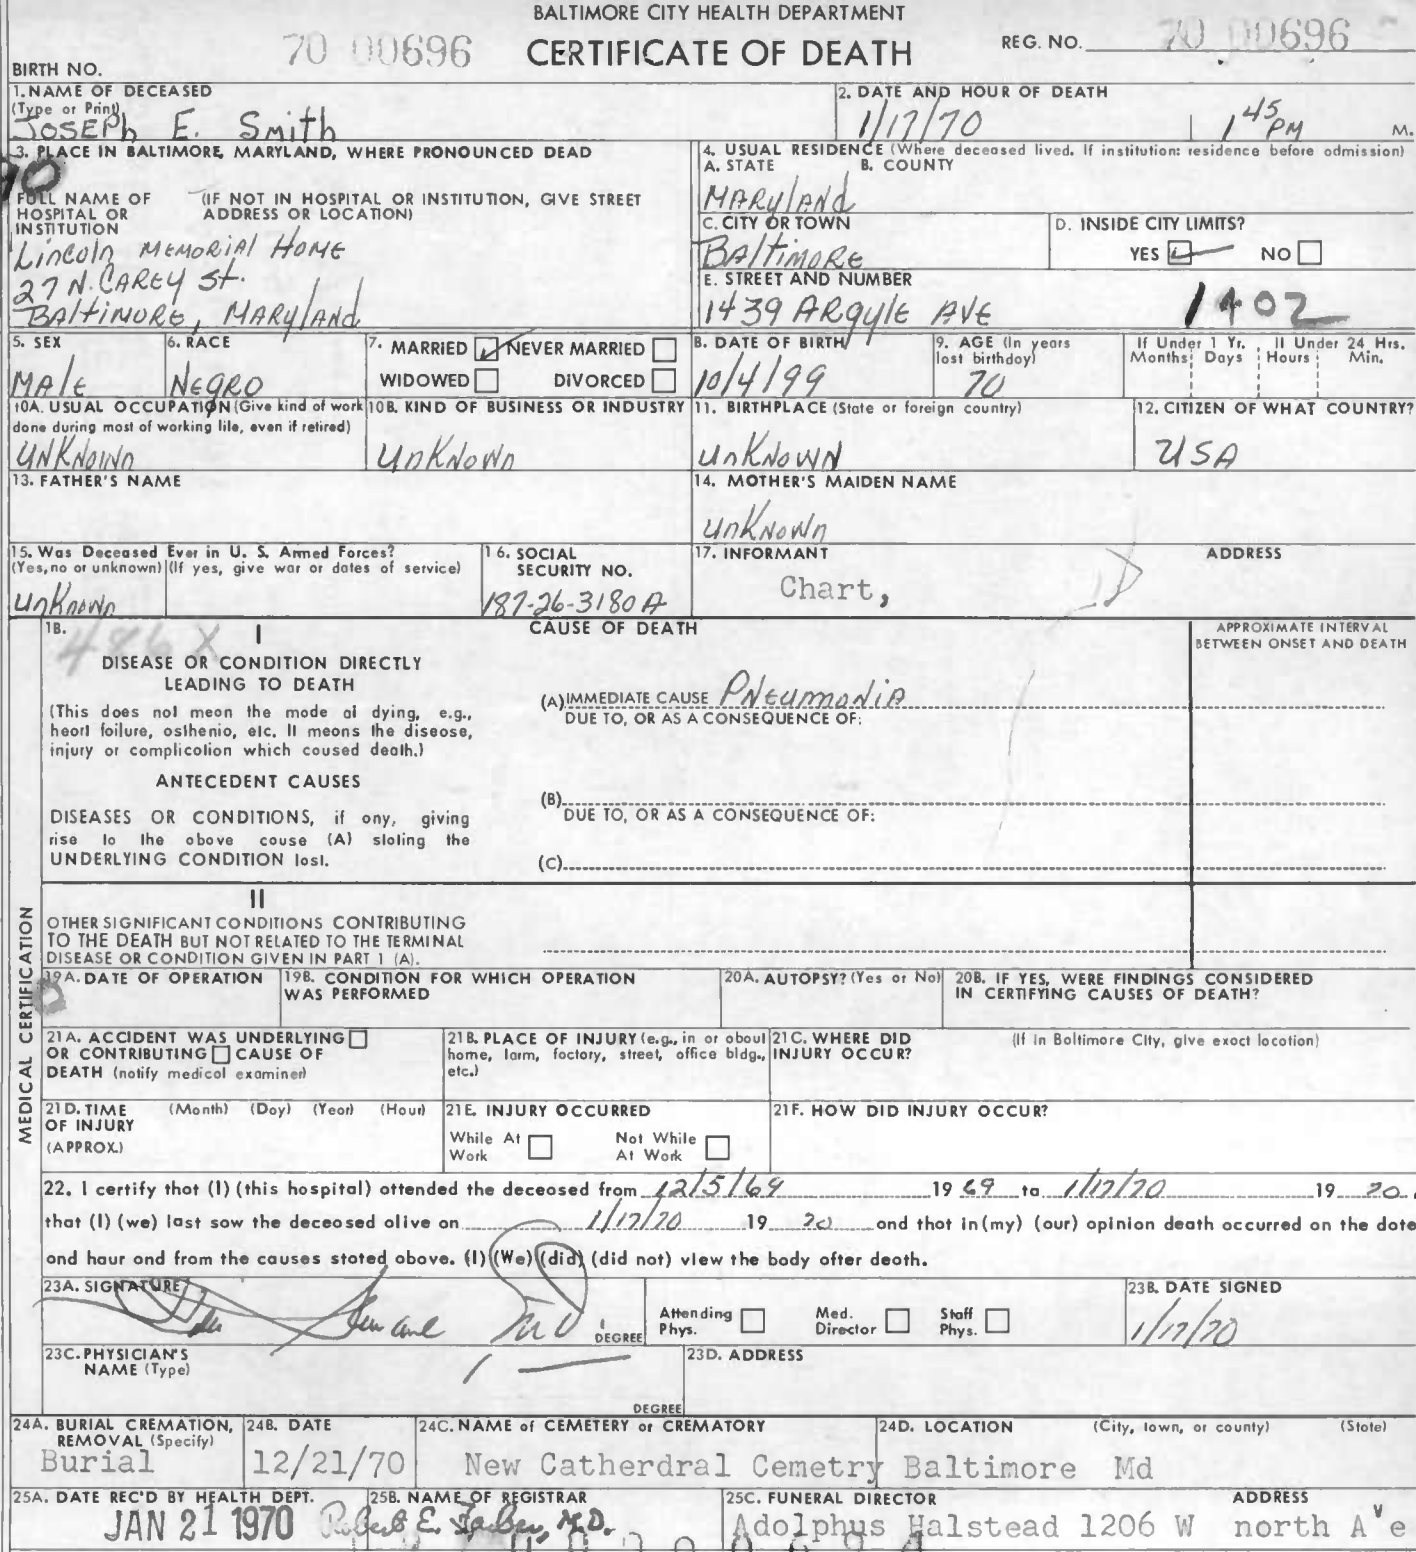 BALTIMORE CITY HEALTH DEPARTMENT
70 00696 CERTIFICATE OF DEATH REG. NO. 70 00696
BIRTH NO.
1. NAME OF DECEASED
(Type or Print)
Joseph E. Smith
2. DATE AND HOUR OF DEATH
1/17/70 1 45 PM M.
3. PLACE IN BALTIMORE, MARYLAND, WHERE PRONOUNCED DEAD
FULL NAME OF HOSPITAL OR INSTITUTION
(IF NOT IN HOSPITAL OR INSTITUTION, GIVE STREET ADDRESS OR LOCATION)
Lincoln Memorial Home
27 N. Carey St.
Baltimore, Maryland
4. USUAL RESIDENCE (Where deceased lived. If institution: residence before admission)
A. STATE B. COUNTY
Maryland
C. CITY OR TOWN
Baltimore
D. INSIDE CITY LIMITS?
YES NO
E. STREET AND NUMBER
1439 Argyle Ave
1402
5. SEX
Male
6. RACE
Negro
7. MARRIED NEVER MARRIED
WIDOWED DIVORCED
8. DATE OF BIRTH
10/4/99
9. AGE (In years last birthday)
70
If Under 1 Yr. If Under 24 Hrs.
Months Days Hours Min.
10A. USUAL OCCUPATION (Give kind of work done during most of working life, even if retired)
Unknown
10B. KIND OF BUSINESS OR INDUSTRY
Unknown
11. BIRTHPLACE (State or foreign country)
Unknown
12. CITIZEN OF WHAT COUNTRY?
USA
13. FATHER'S NAME
14. MOTHER'S MAIDEN NAME
Unknown
15. Was Deceased Ever in U. S. Armed Forces?
(Yes, no or unknown) (If yes, give war or dates of service)
Unknown
16. SOCIAL SECURITY NO.
187-26-3180A
17. INFORMANT ADDRESS
Chart,
18.
486X
I
DISEASE OR CONDITION DIRECTLY
LEADING TO DEATH
(This does not mean the mode of dying, e.g.,
heart failure, asthenia, etc. It means the disease,
injury or complication which caused death.)
ANTECEDENT CAUSES
DISEASES OR CONDITIONS, if any, giving
rise to the above cause (A) stating the
UNDERLYING CONDITION last.
CAUSE OF DEATH
(A) IMMEDIATE CAUSE Pneumonia
DUE TO, OR AS A CONSEQUENCE OF:
(B)
DUE TO, OR AS A CONSEQUENCE OF:
(C)
APPROXIMATE INTERVAL
BETWEEN ONSET AND DEATH
II
OTHER SIGNIFICANT CONDITIONS CONTRIBUTING
TO THE DEATH BUT NOT RELATED TO THE TERMINAL
DISEASE OR CONDITION GIVEN IN PART 1 (A).
MEDICAL CERTIFICATION
19A. DATE OF OPERATION
19B. CONDITION FOR WHICH OPERATION WAS PERFORMED
20A. AUTOPSY? (Yes or No)
20B. IF YES, WERE FINDINGS CONSIDERED IN CERTIFYING CAUSES OF DEATH?
21A. ACCIDENT WAS UNDERLYING
OR CONTRIBUTING CAUSE OF
DEATH (notify medical examiner)
21B. PLACE OF INJURY (e.g., in or about home, farm, factory, street, office bldg., etc.)
21C. WHERE DID INJURY OCCUR?
(If in Baltimore City, give exact location)
21D. TIME OF INJURY (APPROX.)
(Month) (Day) (Year) (Hour)
21E. INJURY OCCURRED
While At Work Not While At Work
21F. HOW DID INJURY OCCUR?
22. I certify that (I) (this hospital) attended the deceased from 12/5/69 19 69 to 1/17/70 19 70,
that (I) (we) last saw the deceased alive on 1/17/70 19 70 and that in (my) (our) opinion death occurred on the date
and hour and from the causes stated above. (I) (We) (did) (did not) view the body after death.
23A. SIGNATURE
MD
DEGREE
Attending Phys. Med. Director Staff Phys.
23B. DATE SIGNED
1/17/70
23C. PHYSICIAN'S NAME (Type)
DEGREE
23D. ADDRESS
24A. BURIAL CREMATION, REMOVAL (Specify)
Burial
24B. DATE
12/21/70
24C. NAME of CEMETERY or CREMATORY
New Catherdral Cemetry
24D. LOCATION (City, town, or county) (State)
Baltimore Md
25A. DATE REC'D BY HEALTH DEPT.
JAN 21 1970
25B. NAME OF REGISTRAR
Robert E. Farber, M.D.
25C. FUNERAL DIRECTOR ADDRESS
Adolphus Halstead 1206 W north Ave